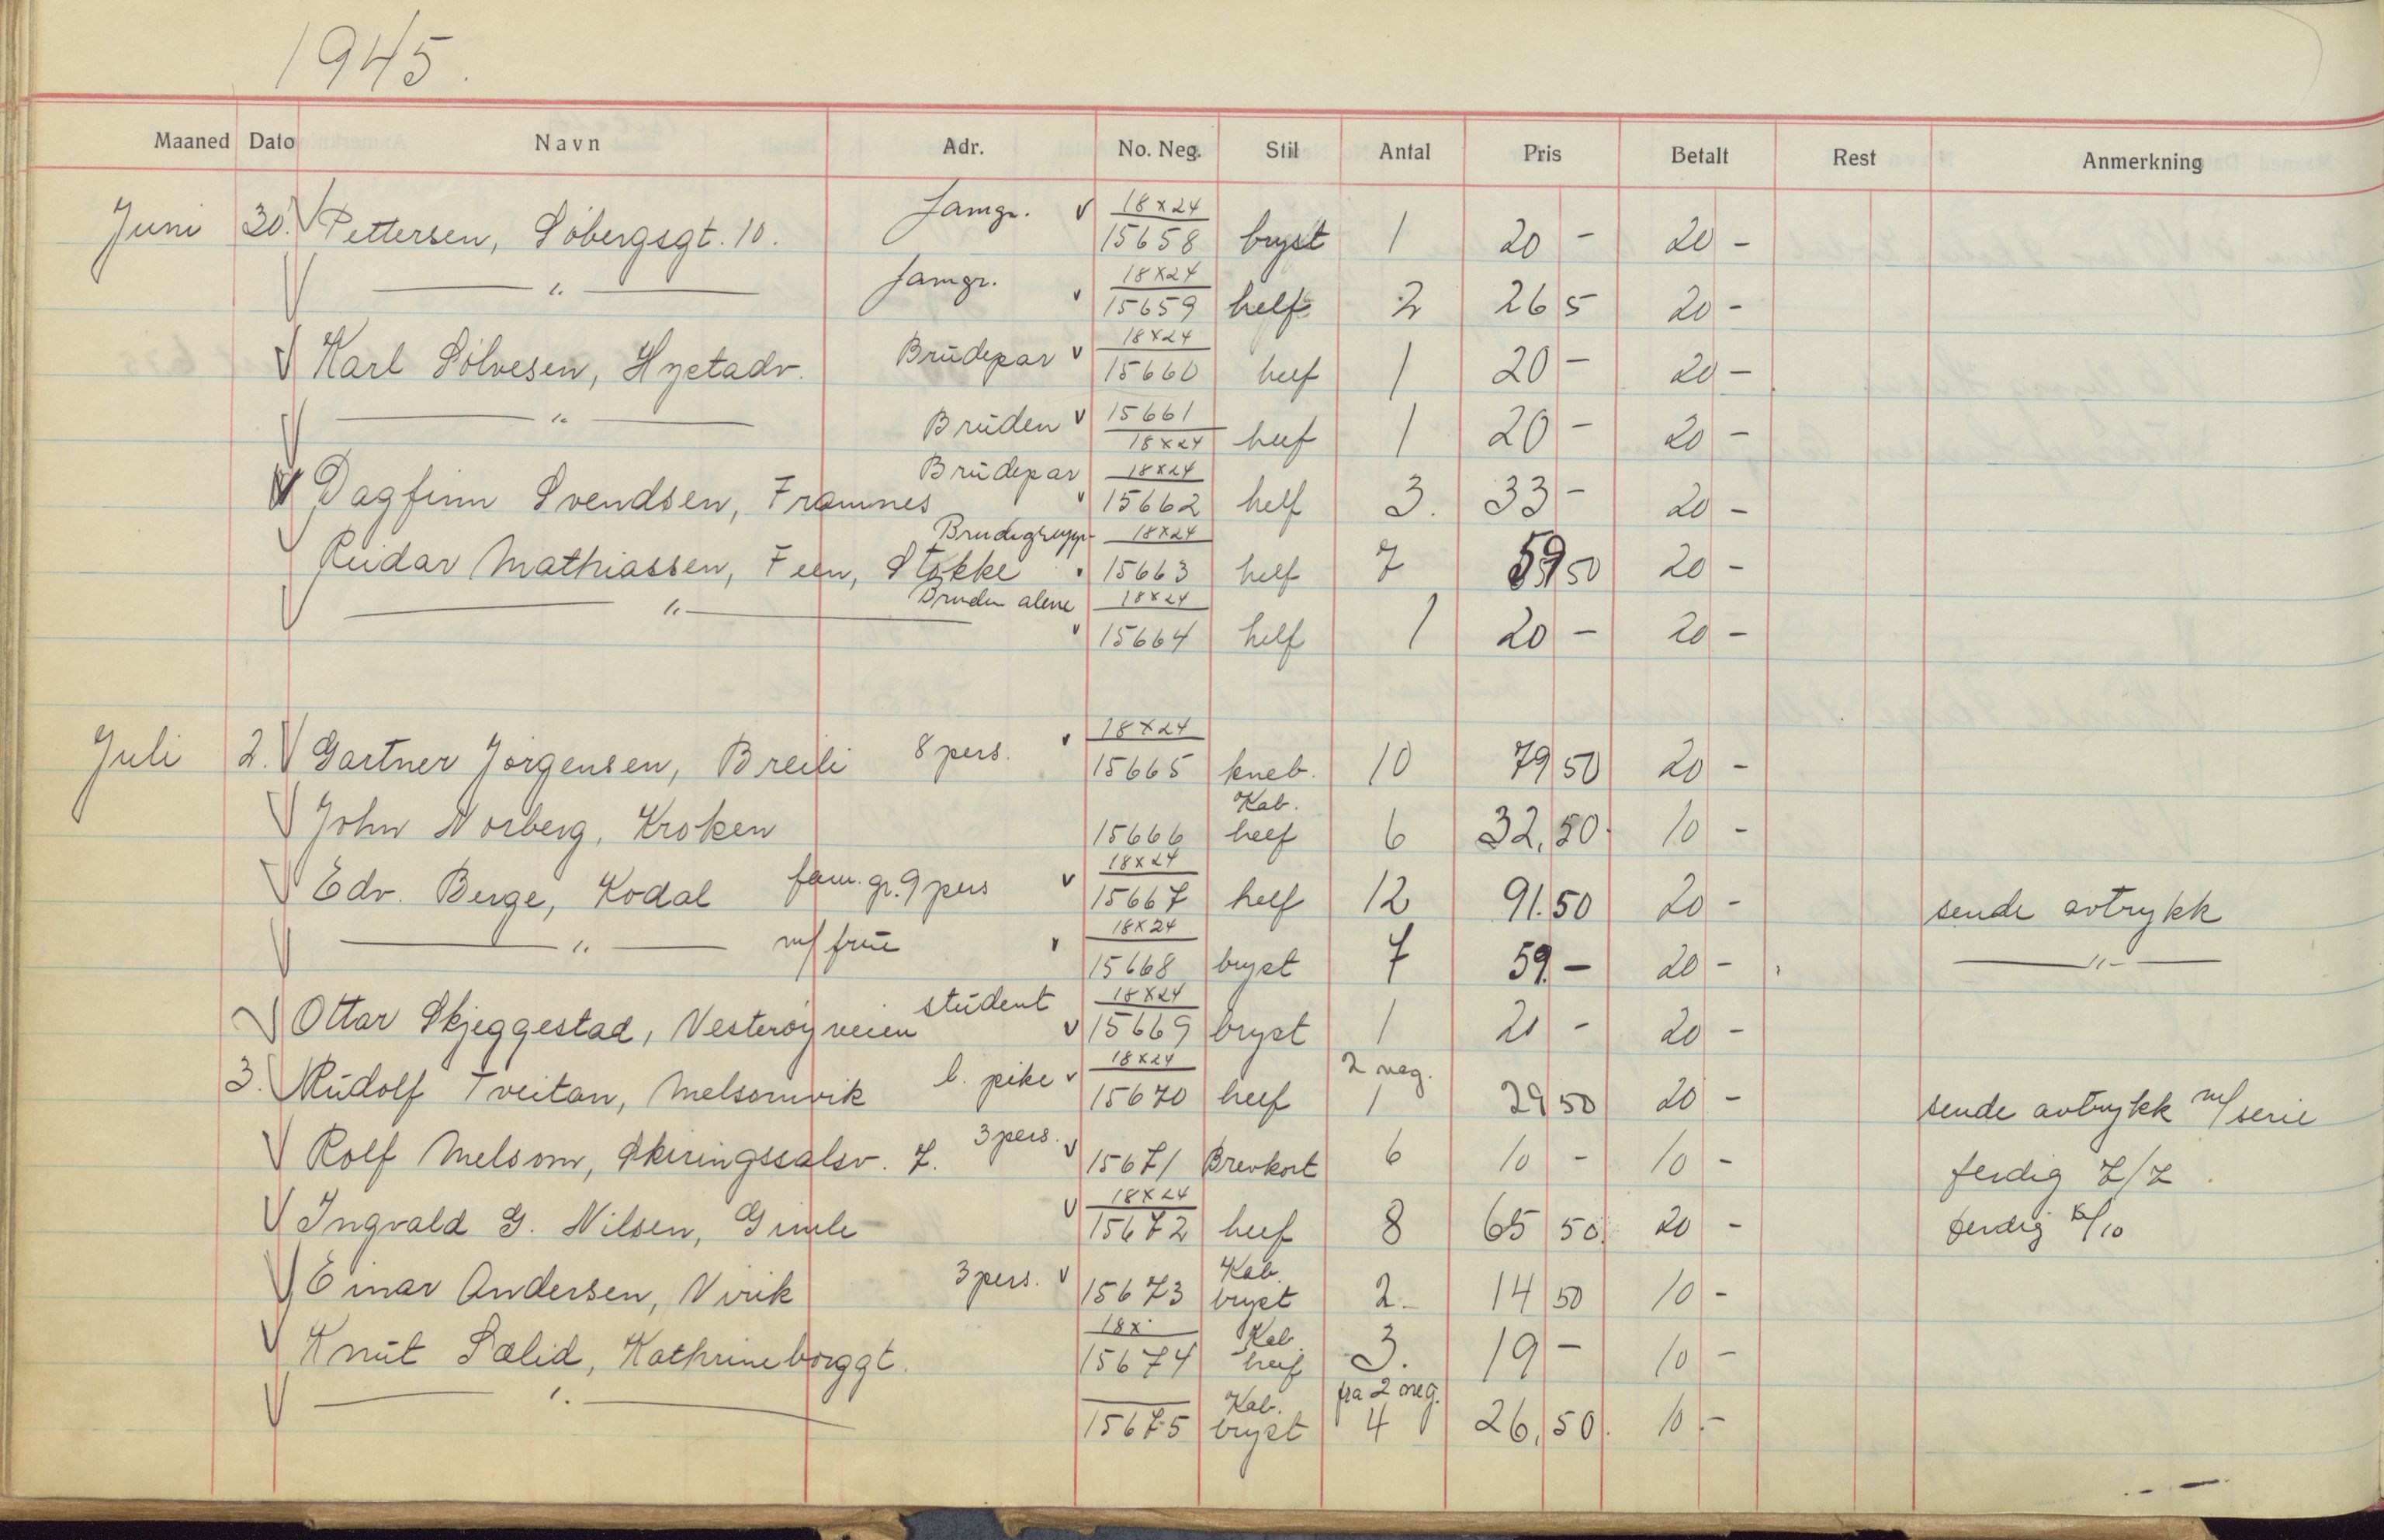 1945.
Maaned Dato Navn Adr. No. Neg. Stil Antal Pris Betalt Rest Anmerkning
Juni 30. Pettersen, Söbergsgt. 10. famgr. 18x24 15658 bryst 1 20 - 20 -
—— " —— famgr. 18x24 15659 helf 2 26 5 20 -
Karl Sölvesen, Hystadv. Brudepar 18x24 15660 helf 1 20 - 20 -
—— " —— Bruden 15661 18x24 helf 1 20 - 20 -
Dagfinn Svendsen, Framnes Brudepar 18x24 15662 helf 3. 33 - 20 -
Reidar Mathiassen, Feen, Stokke Brudegruppe 18x24 15663 helf 7 59 50 20 -
—— " —— Bruden alene 18x24 15664 helf 1 20 - 20 -
Juli 2. Gartner Jörgensen, Breili 8 pers. 18x24 15665 kneb. 10 79 50 20 -
John Norberg, Kroken 15666 Kab. helf 6 32,50 10 -
Edv. Berge, Kodal fam. gr. 9 pers 18x24 15667 helf 12 91.50 20 - sende avtrykk
—— " —— m/ frue 18x24 15668 bryst 7 59.- 20 - —— " ——
Ottar Skjeggestad, Vesteröyveien student 18x24 15669 bryst 1 20 - 20 -
3. Rudolf Tveitan, Melsomvik l. pike 18x24 15670 helf 2 neg. 1 29 50 20 - sende avtrykk m/serie
Rolf Melsom, Skiringssalsv. 7. 3 pers. 15671 Brevkort 6 10 - 10 - ferdig 7/7.
Ingvald G. Nilsen, Gimle 18x24 15672 helf 8 65 50. 20 - ferdig /10
Einar Andersen, Virik 3 pers. 15673 Kab. bryst 2. 14 50 10 -
Knut Sælid, Kathrineborggt. 18x 15674 Kab helf 3. 19 - 10 -
—— " —— 15675 Kab. bryst fra 2 neg. 4 26,50. 10.-